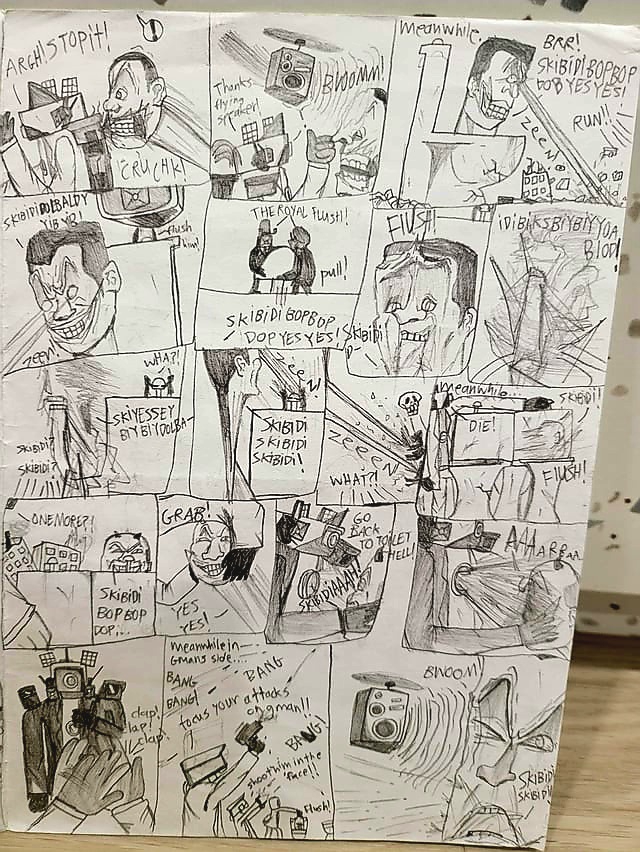 ARGH! STOP IT!
!
CRUCHK!
Thanks
flying
speaker!
BWOMM!
Meanwhile
BRR!
SKIBIDI BOP BOP
DOP YES YES!
ZEEN
RUN!!
flush
him!
ZEEN!
THE ROYAL FLUSH!
pull!
SKIBIDI BOP BOP
DOP YES YES!
FLUSH!
SKIBIDI
WHAT?!
SKIBIDI?
SKIBIDI?
SKIYESSEY
BIYBIYDOLBA
ZEEN
SKIBIDI
SKIBIDI
SKIBIDI!
ZEEEN
WHAT?!
Meanwhile...
SKIBIDI!
DIE!
FlUSH!
ONE MORE?!
SKIBIDI
BOP BOP
DOP...
GRAB!
YES
YES!
GO
BACK
TO TOILET
HELL!
SKIBIDIAAA!!
clap!
clap!
clap!
meanwhile in
Gmans side....
BANG
BANG!
BANG
focus your attacks
on gman!!
BANG!
shoot him in the
face!!
Flush!
BWOOM!
SKIBIDI
SKIBIDI